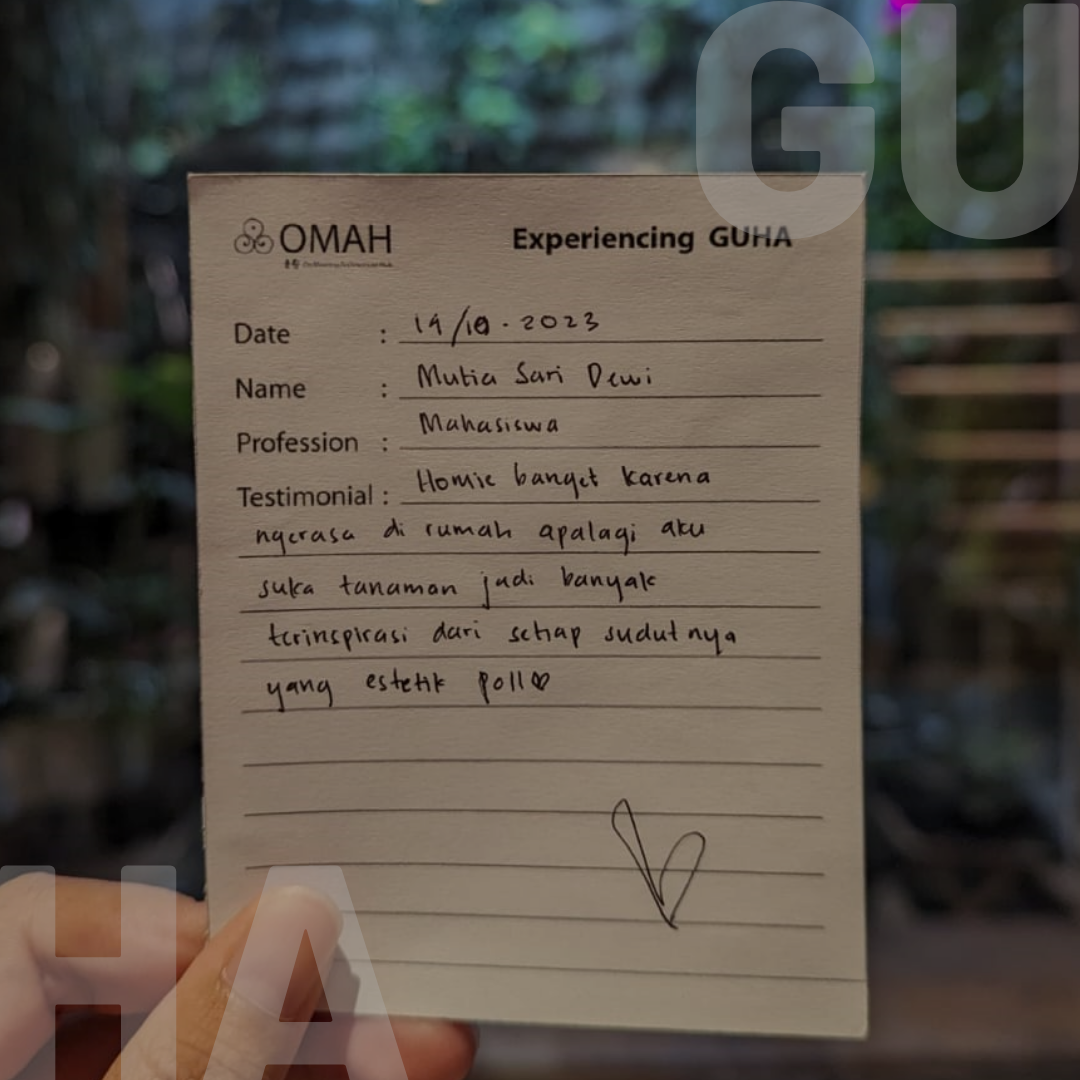 GU
OMAH
Experiencing GUHA
Date : 19/10 - 2023
Name : Mutia Sari Dewi
Profession : Mahasiswa
Testimonial : Homie banget karena
ngerasa di rumah apalagi aku
suka tanaman jadi banyak
terinspirasi dari setiap sudutnya
yang estetik poll♡
HA